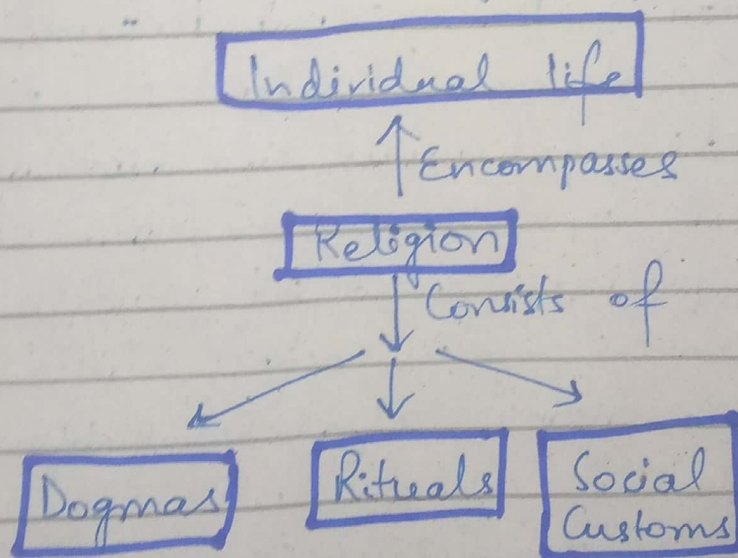 Individual life
Encompasses
Religion
Consists of
Dogmas
Rituals
Social
Customs